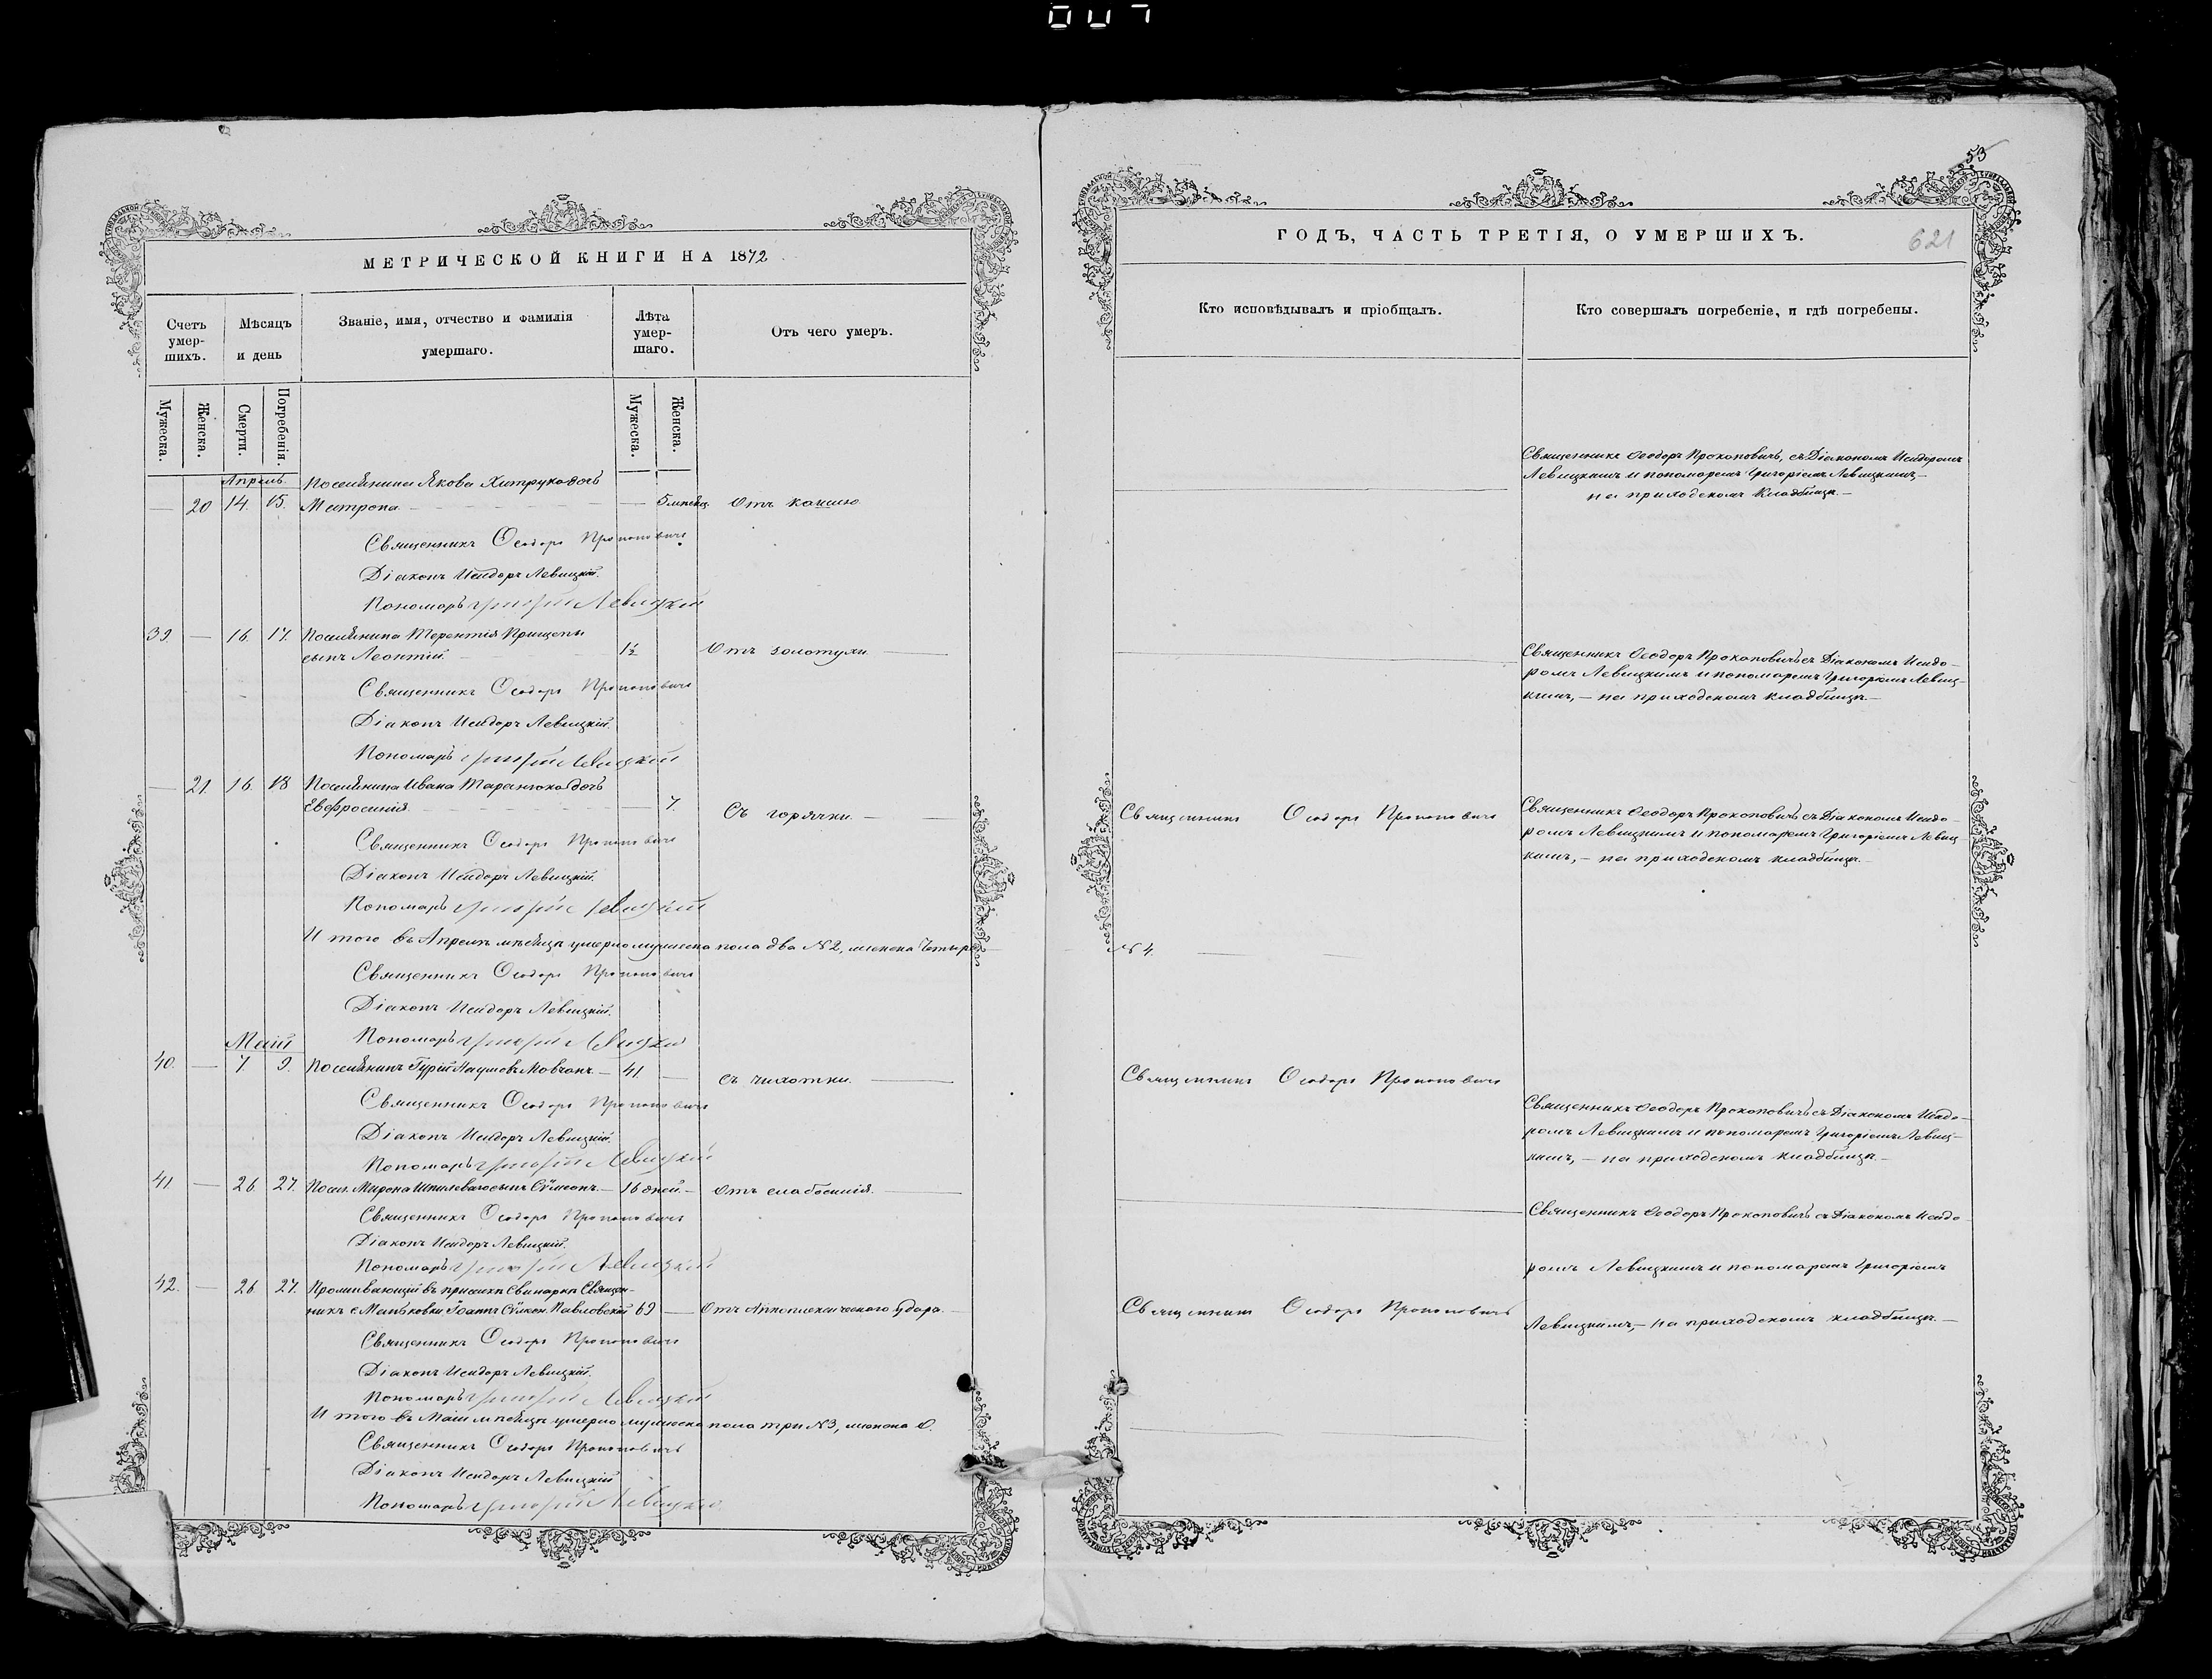 007
МЕТРИЧЕСКОЙ КНИГИ НА 1872
Счетъ умер-шихъ.
Мѣсяцъ и день
Званіе, имя, отчество и фамилія умершаго.
Лѣта умер-шаго.
Отъ чего умеръ.
Мужеска.
Женска.
Смерти.
Погребенія.
Мужеска.
Женска.
Апрель
Поселянина Якова Хитрука дочь
— 20 14. 15. Матрона — 5 мѣсяц. Отъ кашлю
Священникъ Ѳеодоръ Прокоповичъ
Діаконъ Исидоръ Левицкій.
Пономарь Григорій Левицкій
39 — 16. 17. Поселянина Терентія Прищепы
сынъ Леонтій. 1½ Отъ золотухи.
Священникъ Ѳеодоръ Прокоповичъ
Діаконъ Исидоръ Левицкій.
Пономарь Григорій Левицкій
— 21. 16. 18 Поселянина Ивана дочь
Евфросинія — 7. Съ горячки.
Священникъ Ѳеодоръ Прокоповичъ
Діаконъ Исидоръ Левицкій.
Пономарь Григорій Левицкій
И того въ Апрелѣ мѣсяцѣ умерло мужеска пола два №2, женска Четыре
Священникъ Ѳеодоръ Прокоповичъ
Діаконъ Исидоръ Левицкій.
Пономарь Григорій Левицкій
Маій
40. — 7 9. Поселянинъ Гурій Наумовъ Мовчанъ. — 41. — съ чихотки.
Священникъ Ѳеодоръ Прокоповичъ
Діаконъ Исидоръ Левицкій.
Пономарь Григорій Левицкій
41 — 26. 27. Посел. Мирона сынъ Сѵмеонъ. — 16 дней. — Отъ слабосилія.
Священникъ Ѳеодоръ Прокоповичъ
Діаконъ Исидоръ Левицкій.
Пономарь Григорій Левицкій
42. — 26. 27. Проживающій въ приселкѣ Свинаркѣ Священ-
никъ с. Маньковки Іоаннъ Сѵмеон. Павловскій 69 — Отъ Апоплексическаго удара.
Священникъ Ѳеодоръ Прокоповичъ
Діаконъ Исидоръ Левицкій.
Пономарь Григорій Левицкій
И того въ Маіи мѣсяцѣ умерло мужеска пола три №3, женска 0.
Священникъ Ѳеодоръ Прокоповичъ
Діаконъ Исидоръ Левицкій
Пономарь Григорій Левицкій
53
ГОДЪ, ЧАСТЬ ТРЕТІЯ, О УМЕРШИХЪ.
621
Кто исповѣдывалъ и пріобщалъ.
Кто совершалъ погребеніе, и гдѣ погребены.
Священникъ Ѳеодоръ Прокоповичъ, съ Діакономъ Исидоромъ
Левицкимъ и пономаремъ Григоріемъ Левицкимъ, —
на приходскомъ кладбищѣ. —
Священникъ Ѳеодоръ Прокоповичъ съ Діакономъ Исидо-
ромъ Левицкимъ и пономаремъ Григоріемъ Левиц-
кимъ, — на приходскомъ кладбищѣ. —
Священникъ Ѳеодоръ Прокоповичъ
Священникъ Ѳеодоръ Прокоповичъ съ Діакономъ Исидо-
ромъ Левицкимъ и пономаремъ Григоріемъ Левиц-
кимъ, — на приходскомъ кладбищѣ. —
№ 4.
Священникъ Ѳеодоръ Прокоповичъ
Священникъ Ѳеодоръ Прокоповичъ съ Діакономъ Исидо-
ромъ Левицкимъ и пономаремъ Григоріемъ Левиц-
кимъ, — на приходскомъ кладбищѣ. —
Священникъ Ѳеодоръ Прокоповичъ съ Діакономъ Исидо-
ромъ Левицкимъ и пономаремъ Григоріемъ
Священникъ Ѳеодоръ Прокоповичъ
Левицкимъ, — на приходскомъ кладбищѣ. —